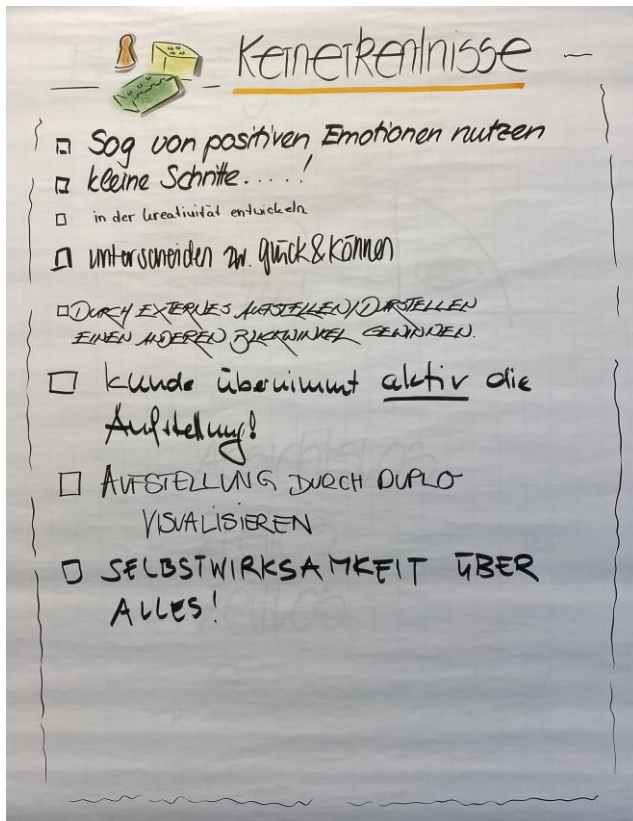 Kernerkentnisse
Sog von positiven Emotionen nutzen
kleine Schritte.....!
in der Kreativität entwickeln
unterscheiden zw. Glück & Können
DURCH EXTERNES AUFSTELLEN/DARSTELLEN
EINEN ANDEREN BLICKWINKEL GEWINNEN.
Kunde übernimmt aktiv die
Aufstellung!
AUFSTELLUNG DURCH DUPLO
VISUALISIEREN
SELBSTWIRKSAMKEIT ÜBER
ALLES!